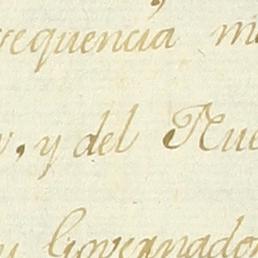 requencia m
, y del Nue
Governador